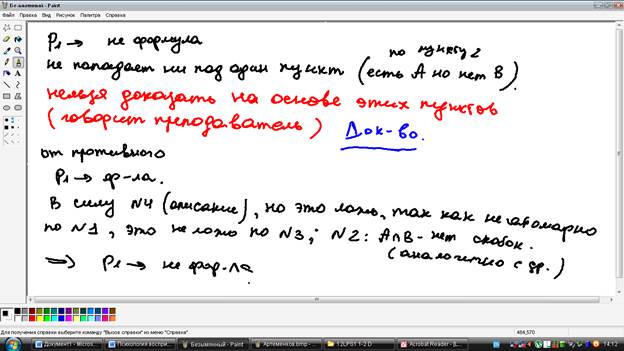 Безымянный - Paint
Файл Правка Вид Рисунок Палитра Справка
P₁ → не формула
по пункту 2
не попадает ни под один пункт (есть A но нет B).
нельзя доказать на основе этих пунктов
(говорит преподаватель)
Док-во.
от противного
P₁ → ф-ла.
В силу N4 (описание), но это ложь, так как не атомарно
по N1, это не ложо по N3; N2: A∩B - нет скобок.
(аналогично с др.)
⇒ P₁ → не фор-ла.
Для получения справки выберите команду "Вызов справки" из меню "Справка".
484,570
Документ1 - Micros...
Психология воспри...
Безымянный - Paint
Артеменков.bmp - ...
12LPS1 1-2 D
Acrobat Reader - [...
14:12